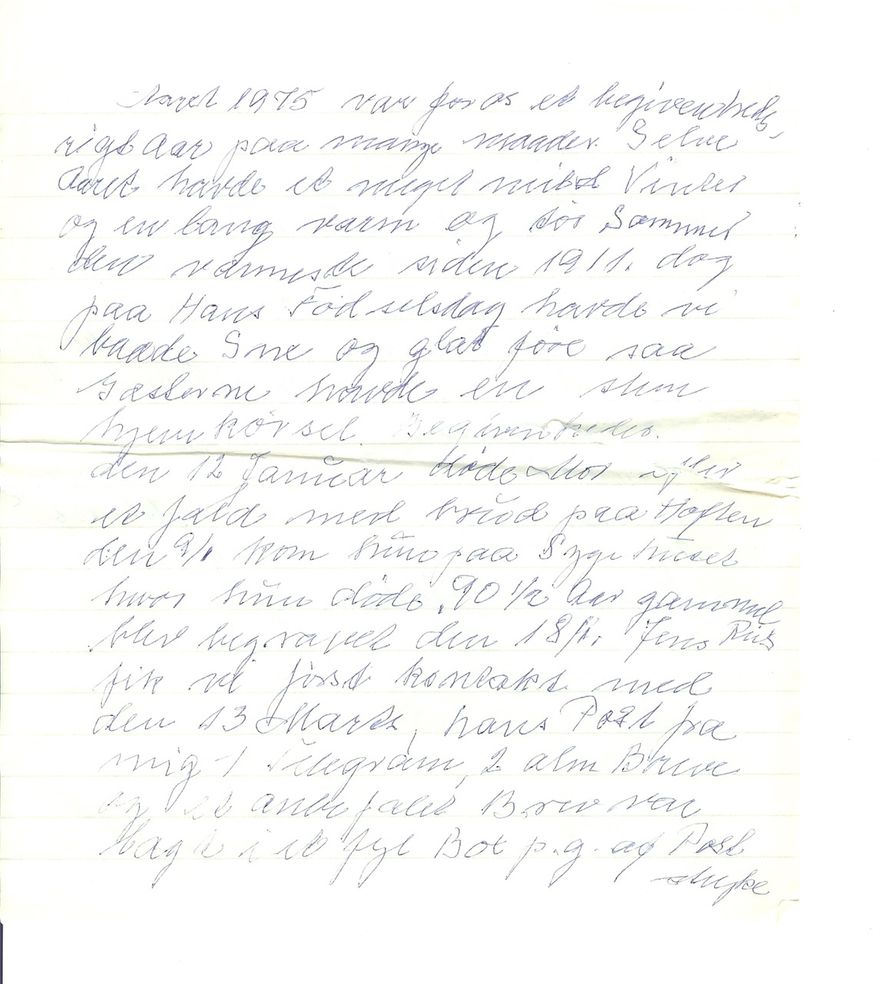 Aaret 1975 var for os et begivenheds-
rigt Aar paa mange maader. Selve
Aaret havde et meget mildt Vinter
og en lang varm og tør Sommer
den varmeste siden 1911. dog
paa Hans Födselsdag havde vi
baade Sne og glat före saa
Gæsterne havde en slem
hjemkörsel. Begivenheder.
den 12 Januar döde Mor efter
et fald med brud paa Hoften
den 9/1 kom hun paa Sygehuset
hvor hun döde, 90 1/2 Aar gammel
blev begravet den 18/1. Jens
fik vi först kontakt med
den 13 Marts, hans Post fra
mig 1 Telegram, 2 alm Breve
og et anbefalet Brev var
lagt i et Box p.g. af Post